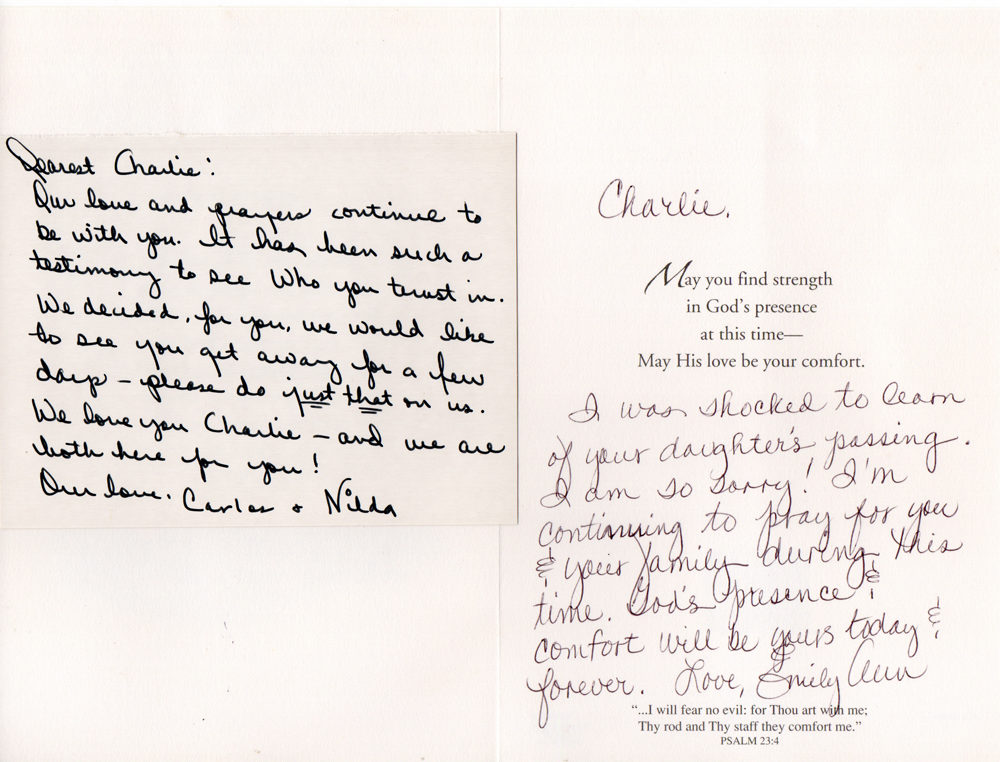 Dearest Charlie:
Our love and prayers continue to
be with you. It has been such a
testimony to see Who you trust in.
We decided, for you, we would like
to see you get away for a few
days – please do just that on us.
We love you Charlie – and we are
both here for you!
Our love, Carlos & Nilda
Charlie,
May you find strength
in God's presence
at this time—
May His love be your comfort.
I was shocked to learn
of your daughter's passing.
I am so sorry! I'm
continuing to pray for you
& your family during this
time. God's presence &
comfort will be yours today &
forever. Love, Emily Ann
“...I will fear no evil: for Thou art with me;
Thy rod and Thy staff they comfort me.”
PSALM 23:4